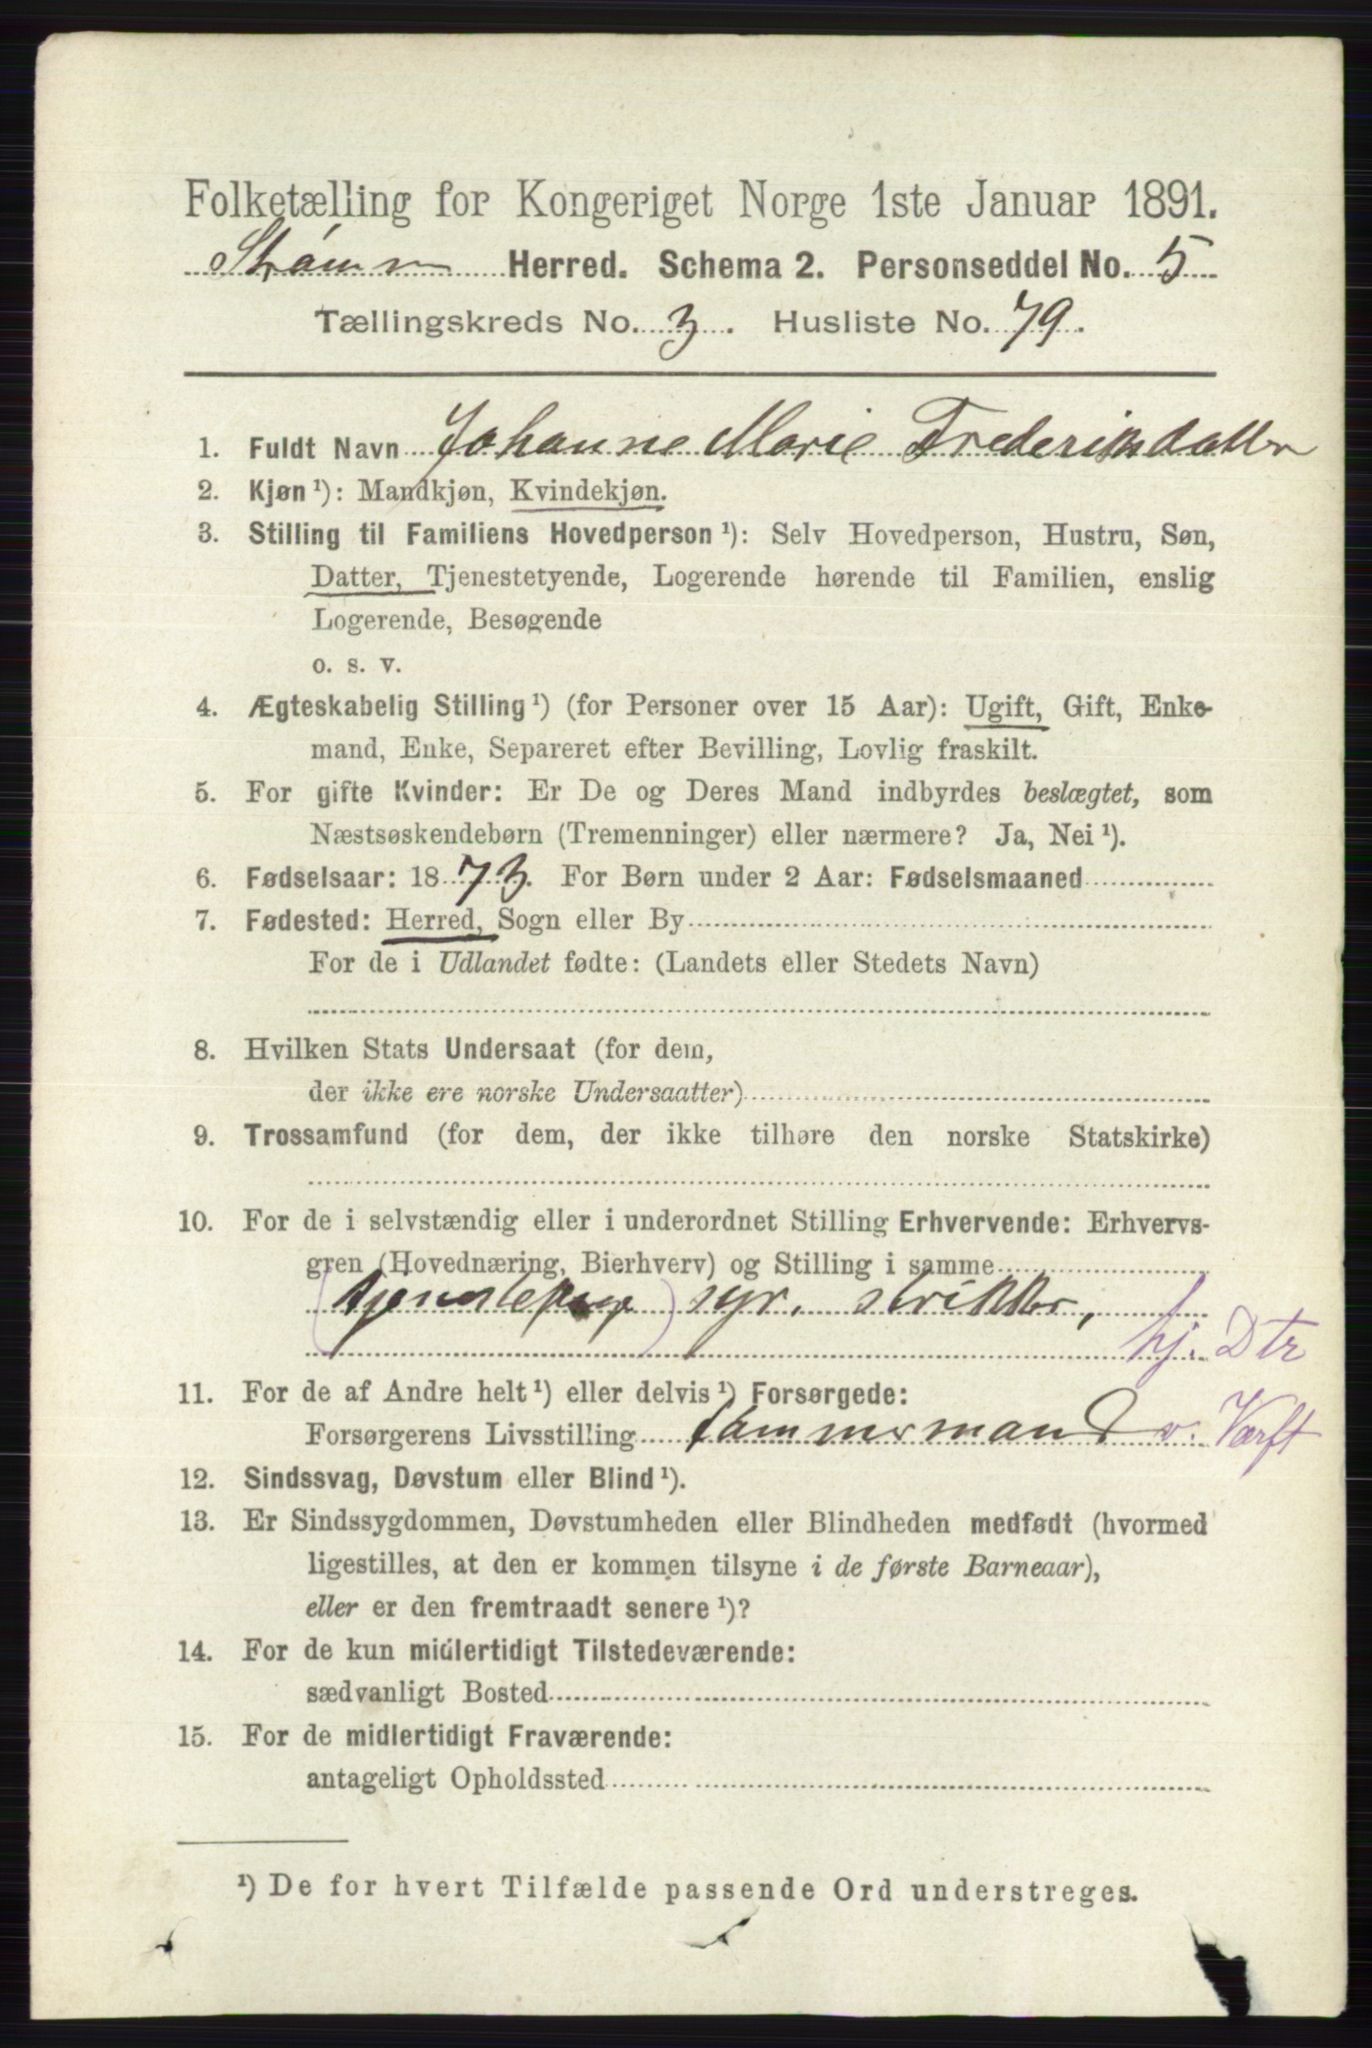 Folketælling for Kongeriget Norge 1ste Januar 1891.
Strømm Herred. Schema 2. Personseddel No. 5
Tællingskreds No. 3. Husliste No. 79.
1. Fuldt Navn Johanne Marie Frederiksdatter
2. Kjøn ¹): Mandkjøn, Kvindekjøn.
3. Stilling til Familiens Hovedperson ¹): Selv Hovedperson, Hustru, Søn,
Datter, Tjenestetyende, Logerende hørende til Familien, enslig
Logerende, Besøgende
o. s. v.
4. Ægteskabelig Stilling ¹) (for Personer over 15 Aar): Ugift, Gift, Enke-
mand, Enke, Separeret efter Bevilling, Lovlig fraskilt.
5. For gifte Kvinder: Er De og Deres Mand indbyrdes beslægtet, som
Næstsøskendebørn (Tremenninger) eller nærmere? Ja, Nei ¹).
6. Fødselsaar: 1873. For Børn under 2 Aar: Fødselsmaaned
7. Fødested: Herred, Sogn eller By
For de i Udlandet fødte: (Landets eller Stedets Navn)
8. Hvilken Stats Undersaat (for dem,
der ikke ere norske Undersaatter)
9. Trossamfund (for dem, der ikke tilhøre den norske Statskirke)
10. For de i selvstændig eller i underordnet Stilling Erhvervende: Erhvervs-
gren (Hovednæring, Bierhverv) og Stilling i samme
(tjenstepige) syr, strikker,
hj. Dtr
11. For de af Andre helt ¹) eller delvis ¹) Forsørgede:
Forsørgerens Livsstilling tømmermand v. Værft
12. Sindssvag, Døvstum eller Blind ¹).
13. Er Sindssygdommen, Døvstumheden eller Blindheden medfødt (hvormed
ligestilles, at den er kommen tilsyne i de første Barneaar),
eller er den fremtraadt senere ¹)?
14. For de kun midlertidigt Tilstedeværende:
sædvanligt Bosted
15. For de midlertidigt Fraværende:
antageligt Opholdssted
¹) De for hvert Tilfælde passende Ord understreges.